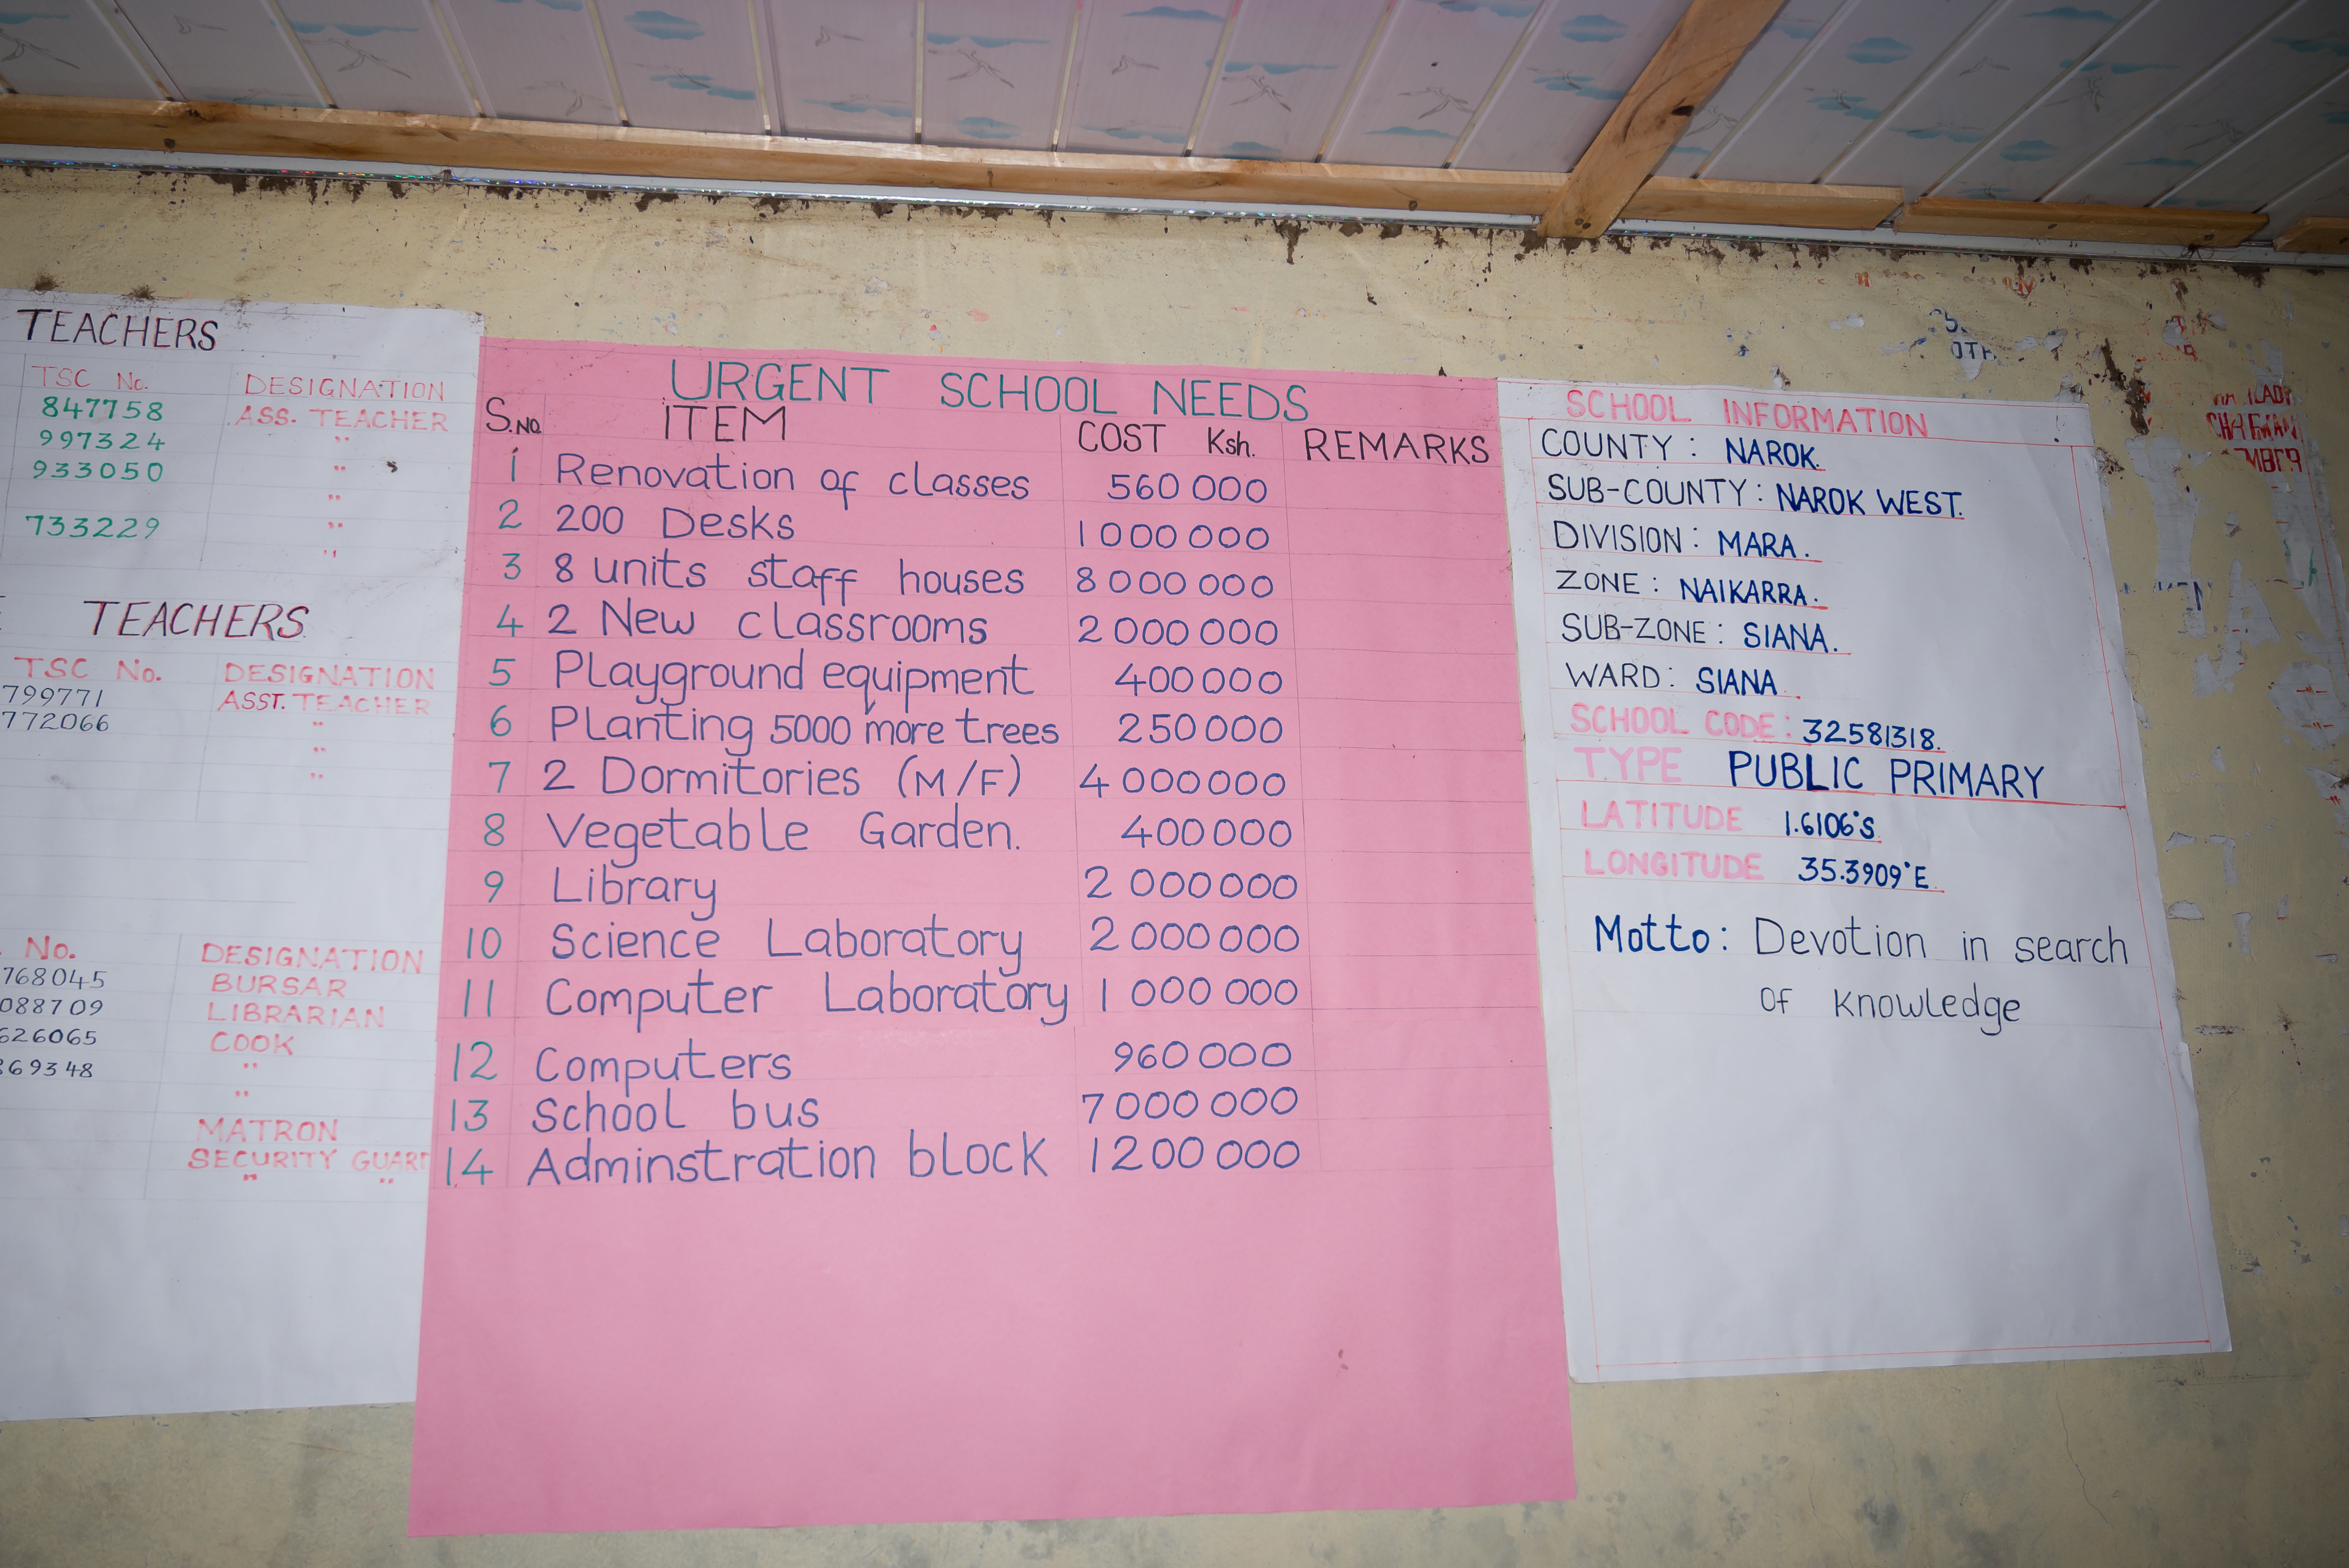 TEACHERS
TSC No. DESIGNATION
847758 ASS. TEACHER
997324 "
933050 "
"
733229 "
"
TEACHERS
TSC No. DESIGNATION
799771 ASST. TEACHER
772066 "
"
"
No. DESIGNATION
768045 BURSAR
088709 LIBRARIAN
626065 COOK
69348 "
"
MATRON
SECURITY GUARD
" "
URGENT SCHOOL NEEDS
S.NO ITEM COST Ksh. REMARKS
1 Renovation of classes 560 000
2 200 Desks 1 000 000
3 8 units staff houses 8 000 000
4 2 New classrooms 2 000 000
5 Playground equipment 400000
6 Planting 5000 more trees 250000
7 2 Dormitories (M/F) 4 000000
8 Vegetable Garden. 400000
9 Library 2 000000
10 Science Laboratory 2 000000
11 Computer Laboratory 1 000 000
12 Computers 960 000
13 School bus 7 000 000
14 Adminstration block 1200 000
SCHOOL INFORMATION
COUNTY : NAROK.
SUB-COUNTY : NAROK WEST.
DIVISION : MARA.
ZONE : NAIKARRA.
SUB-ZONE : SIANA.
WARD : SIANA
SCHOOL CODE : 32581318.
TYPE PUBLIC PRIMARY
LATITUDE 1.6106°S
LONGITUDE 35.3909°E
Motto: Devotion in search
of knowledge